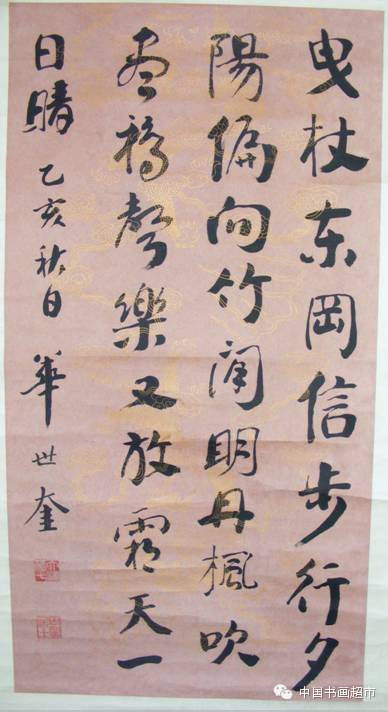 曳杖东岡信步行夕
陽偏向竹间明丹楓吹
盡鴉聲樂又放霜天一
日晴 乙亥秋日 華世奎
中国书画超市